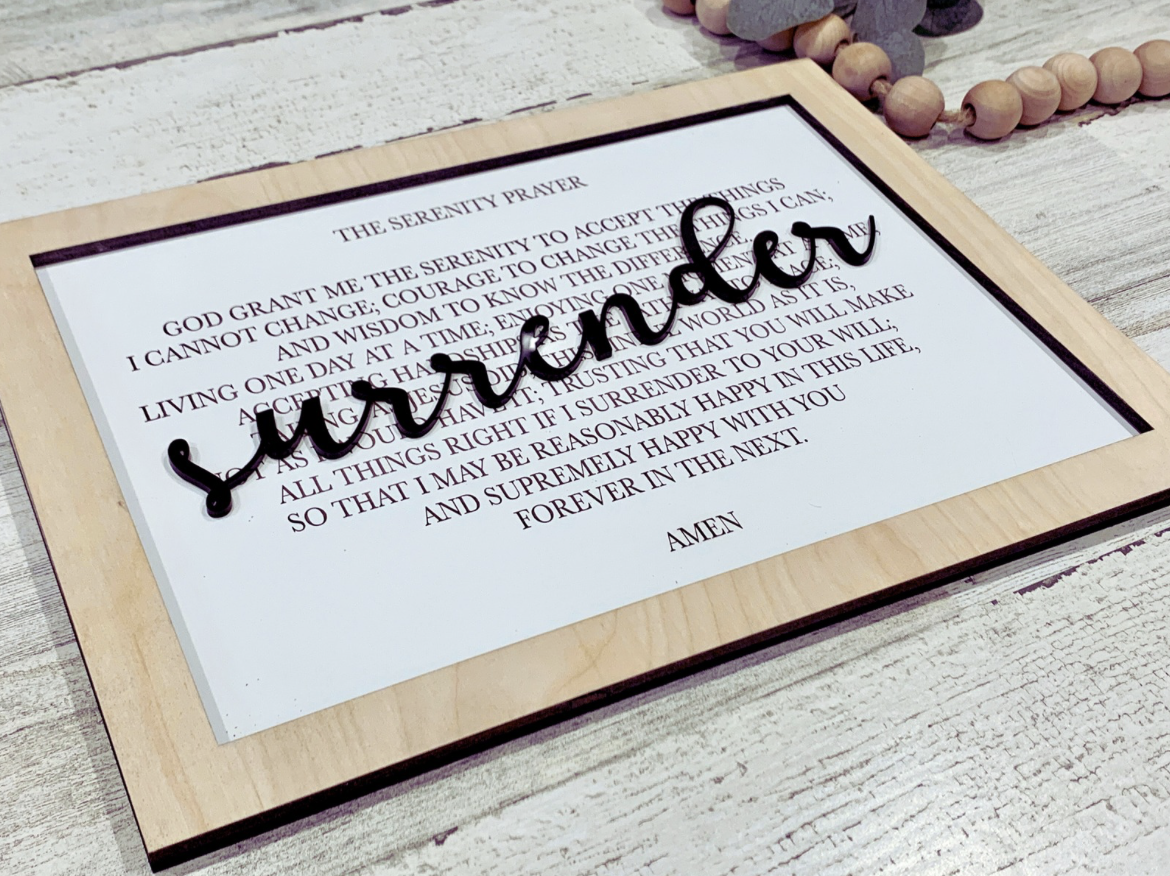 THE SERENITY PRAYER
GOD GRANT ME THE SERENITY TO ACCEPT THE THINGS
I CANNOT CHANGE; COURAGE TO CHANGE THE THINGS I CAN;
AND WISDOM TO KNOW THE DIFFERENCE.
LIVING ONE DAY AT A TIME; ENJOYING ONE
ACCEPTING HARDSHIPS
JESUS DID, THIS WORLD AS IT IS,
NOT AS I WOULD HAVE IT; TRUSTING THAT YOU WILL MAKE
ALL THINGS RIGHT IF I SURRENDER TO YOUR WILL;
SO THAT I MAY BE REASONABLY HAPPY IN THIS LIFE,
AND SUPREMELY HAPPY WITH YOU
FOREVER IN THE NEXT.
AMEN
surrender